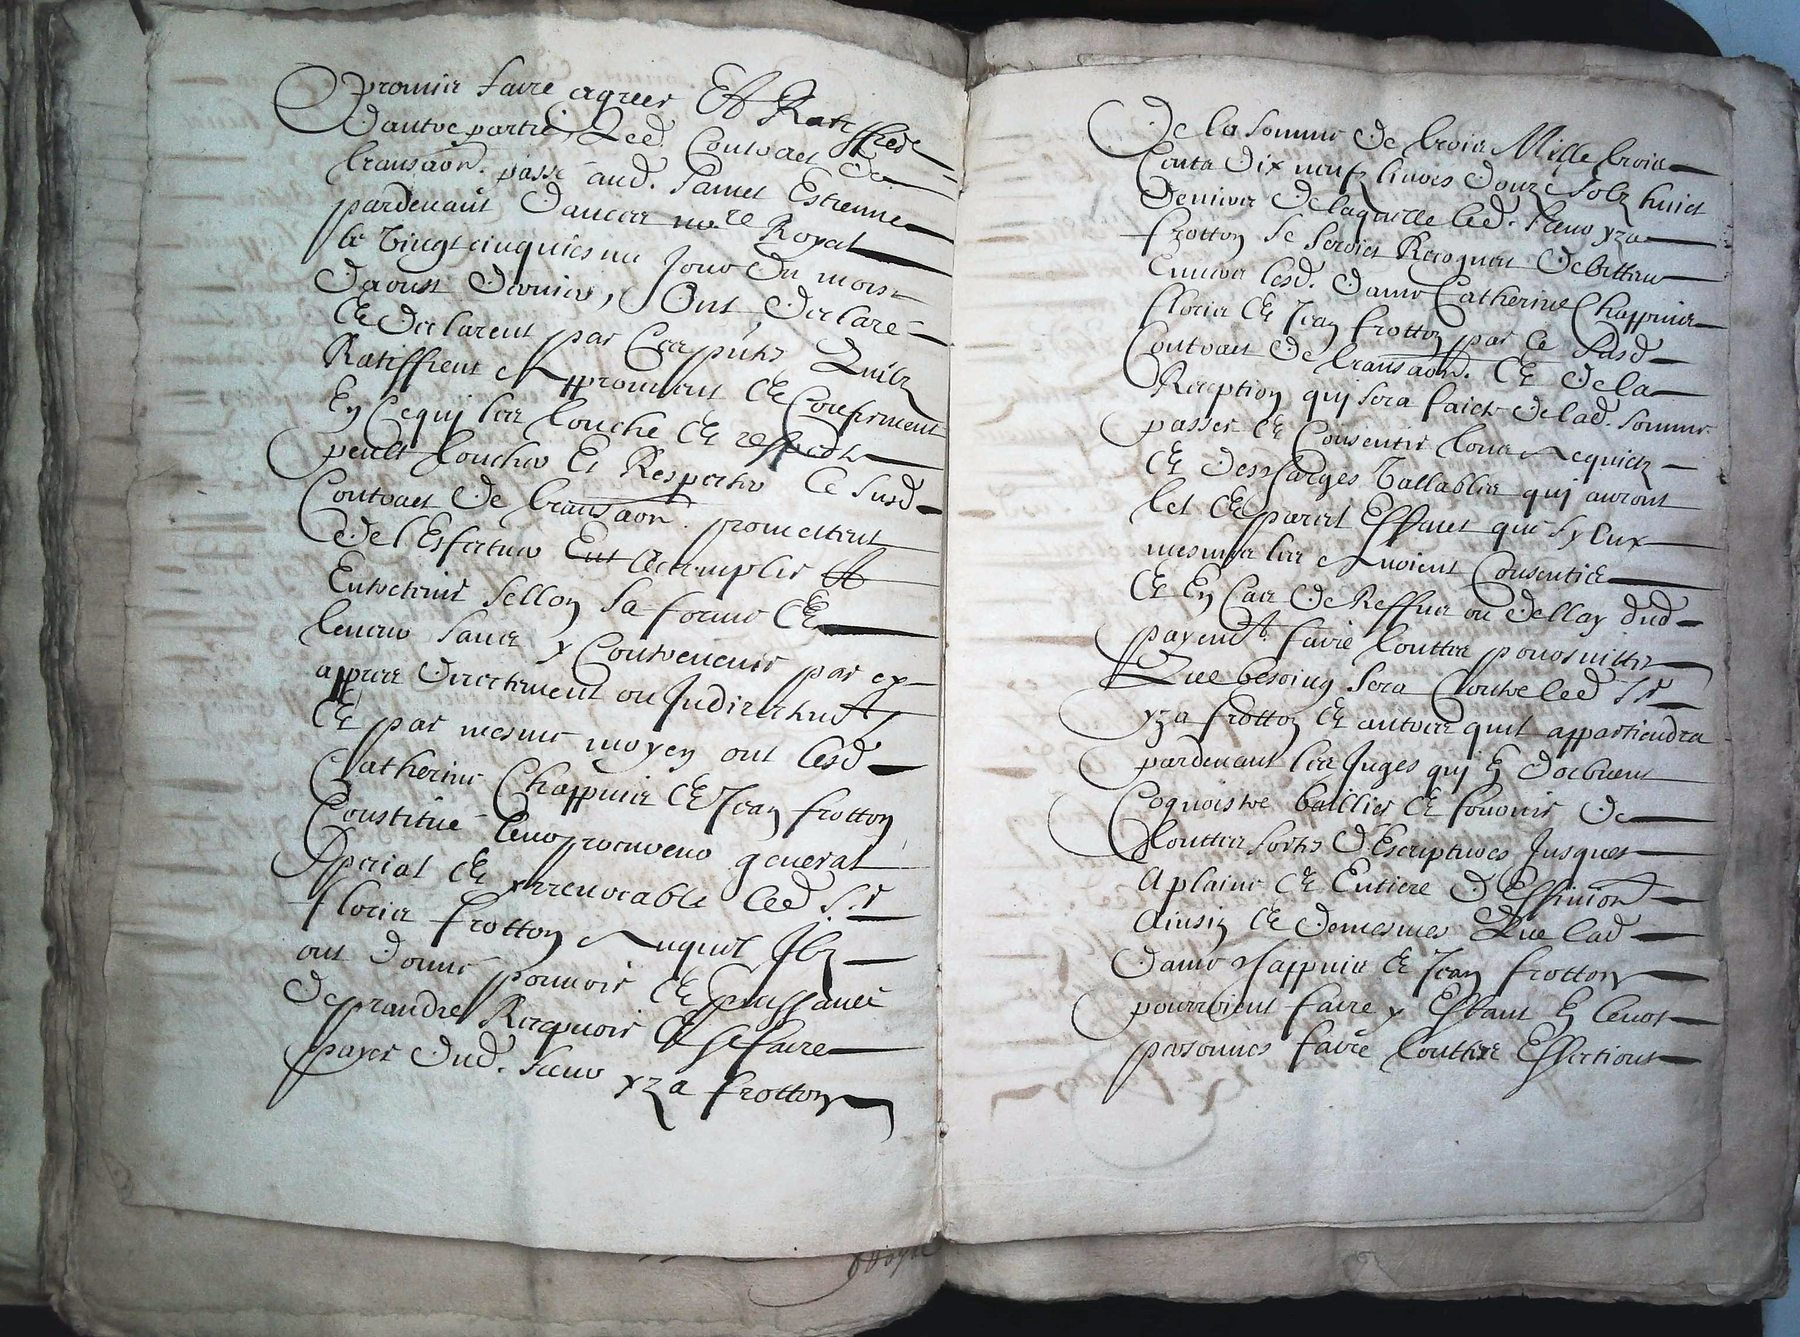 promis faire agreer Et Ratiffier
dautre partie, Led. Contract de
transaon. passé aud. Sainct Estienne
pardevant Dancer nore. Royal
le vingt cinquiesme Jour du mois
daoust dernier, Ont declaré
et declarent par Ces pntes Quilz
Ratiffient Approuvent et Confirment
En Ce qui les touche et
peult toucher Et Respecter Le Susd.
Contract de transaon. promettent
de l'Esfectuer Ent accomplir Et
Entretenir Sellon Sa forme et
teneur Sans y Contrevenir par ex-
apres directement ou Indirectemt.
et par mesme moyen ont lesd.
Catherine Chappuis et Jean frotton
Constitué leur procureur general
Special et yrrevocable led. Sr.
floris frotton Auquel Ilz
ont donné pouvoir et puissance
de prandre Recepvoir Et Se faire
payer dud. Sieur yza frotton
De la Somme de trois Mille trois
Cents dix neufz livres douze Solz huict
deniers de laquelle led. Sieur yza
frotton Se Seroict Recogneu debitteur
Envers lesd. dame Catherine Chappuis
floris et Jean frotton par le Susd.
Contract de transaon. et de la
Reception qui Sera faicte de lad. Somme
passer et Consentir tous Acquictz
et descharges Vallables qui auront
tel et pareil Effaict que Sy Eux
mesmes les Avoient Consenties
et En Cas de Reffus ou dellay dud.
payemt. faire touttes poursuittes
Que besoing Sera Contre led. Sr.
yza frotton et autres quil appartiendra
pardevant les Juges qui En doibvent
Cognoistre bailler et fournir de
touttes Sortes d'Escriptures Jusques
A plaine et Entiere Deffinion.
Ainsin et de mesmes Que lad.
dame Chappuis et Jean frotton
pourroient faire y Estant En leurs
personnes faire touttes Assertions